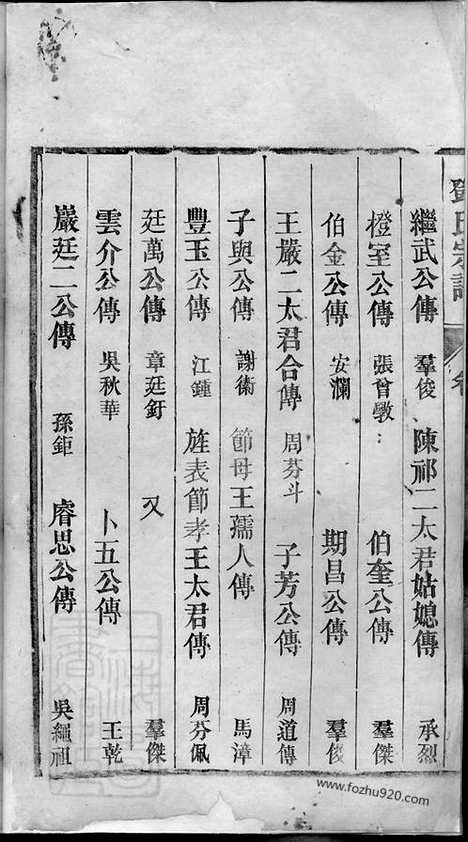 氏宗譜
繼武公傳 羣俊 陳祁二太君姑媳傳 承烈
橙室公傳 張曾敭 伯奎公傳 羣傑
伯金公傳 安瀾 期昌公傳 羣俊
王嚴二太君合傳 周芬斗 子芳公傳 周道傳
子與公傳 謝衛 節母王孺人傳 馬漳
豐玉公傳 江鍾 旌表節孝王太君傳 周芬佩
廷萬公傳 章廷釪 又 羣傑
雲介公傳 吳秋華 卜五公傳 王乾
巖廷二公傳 孫鉅 睿思公傳 吳繩祖
www.fozhu920.com